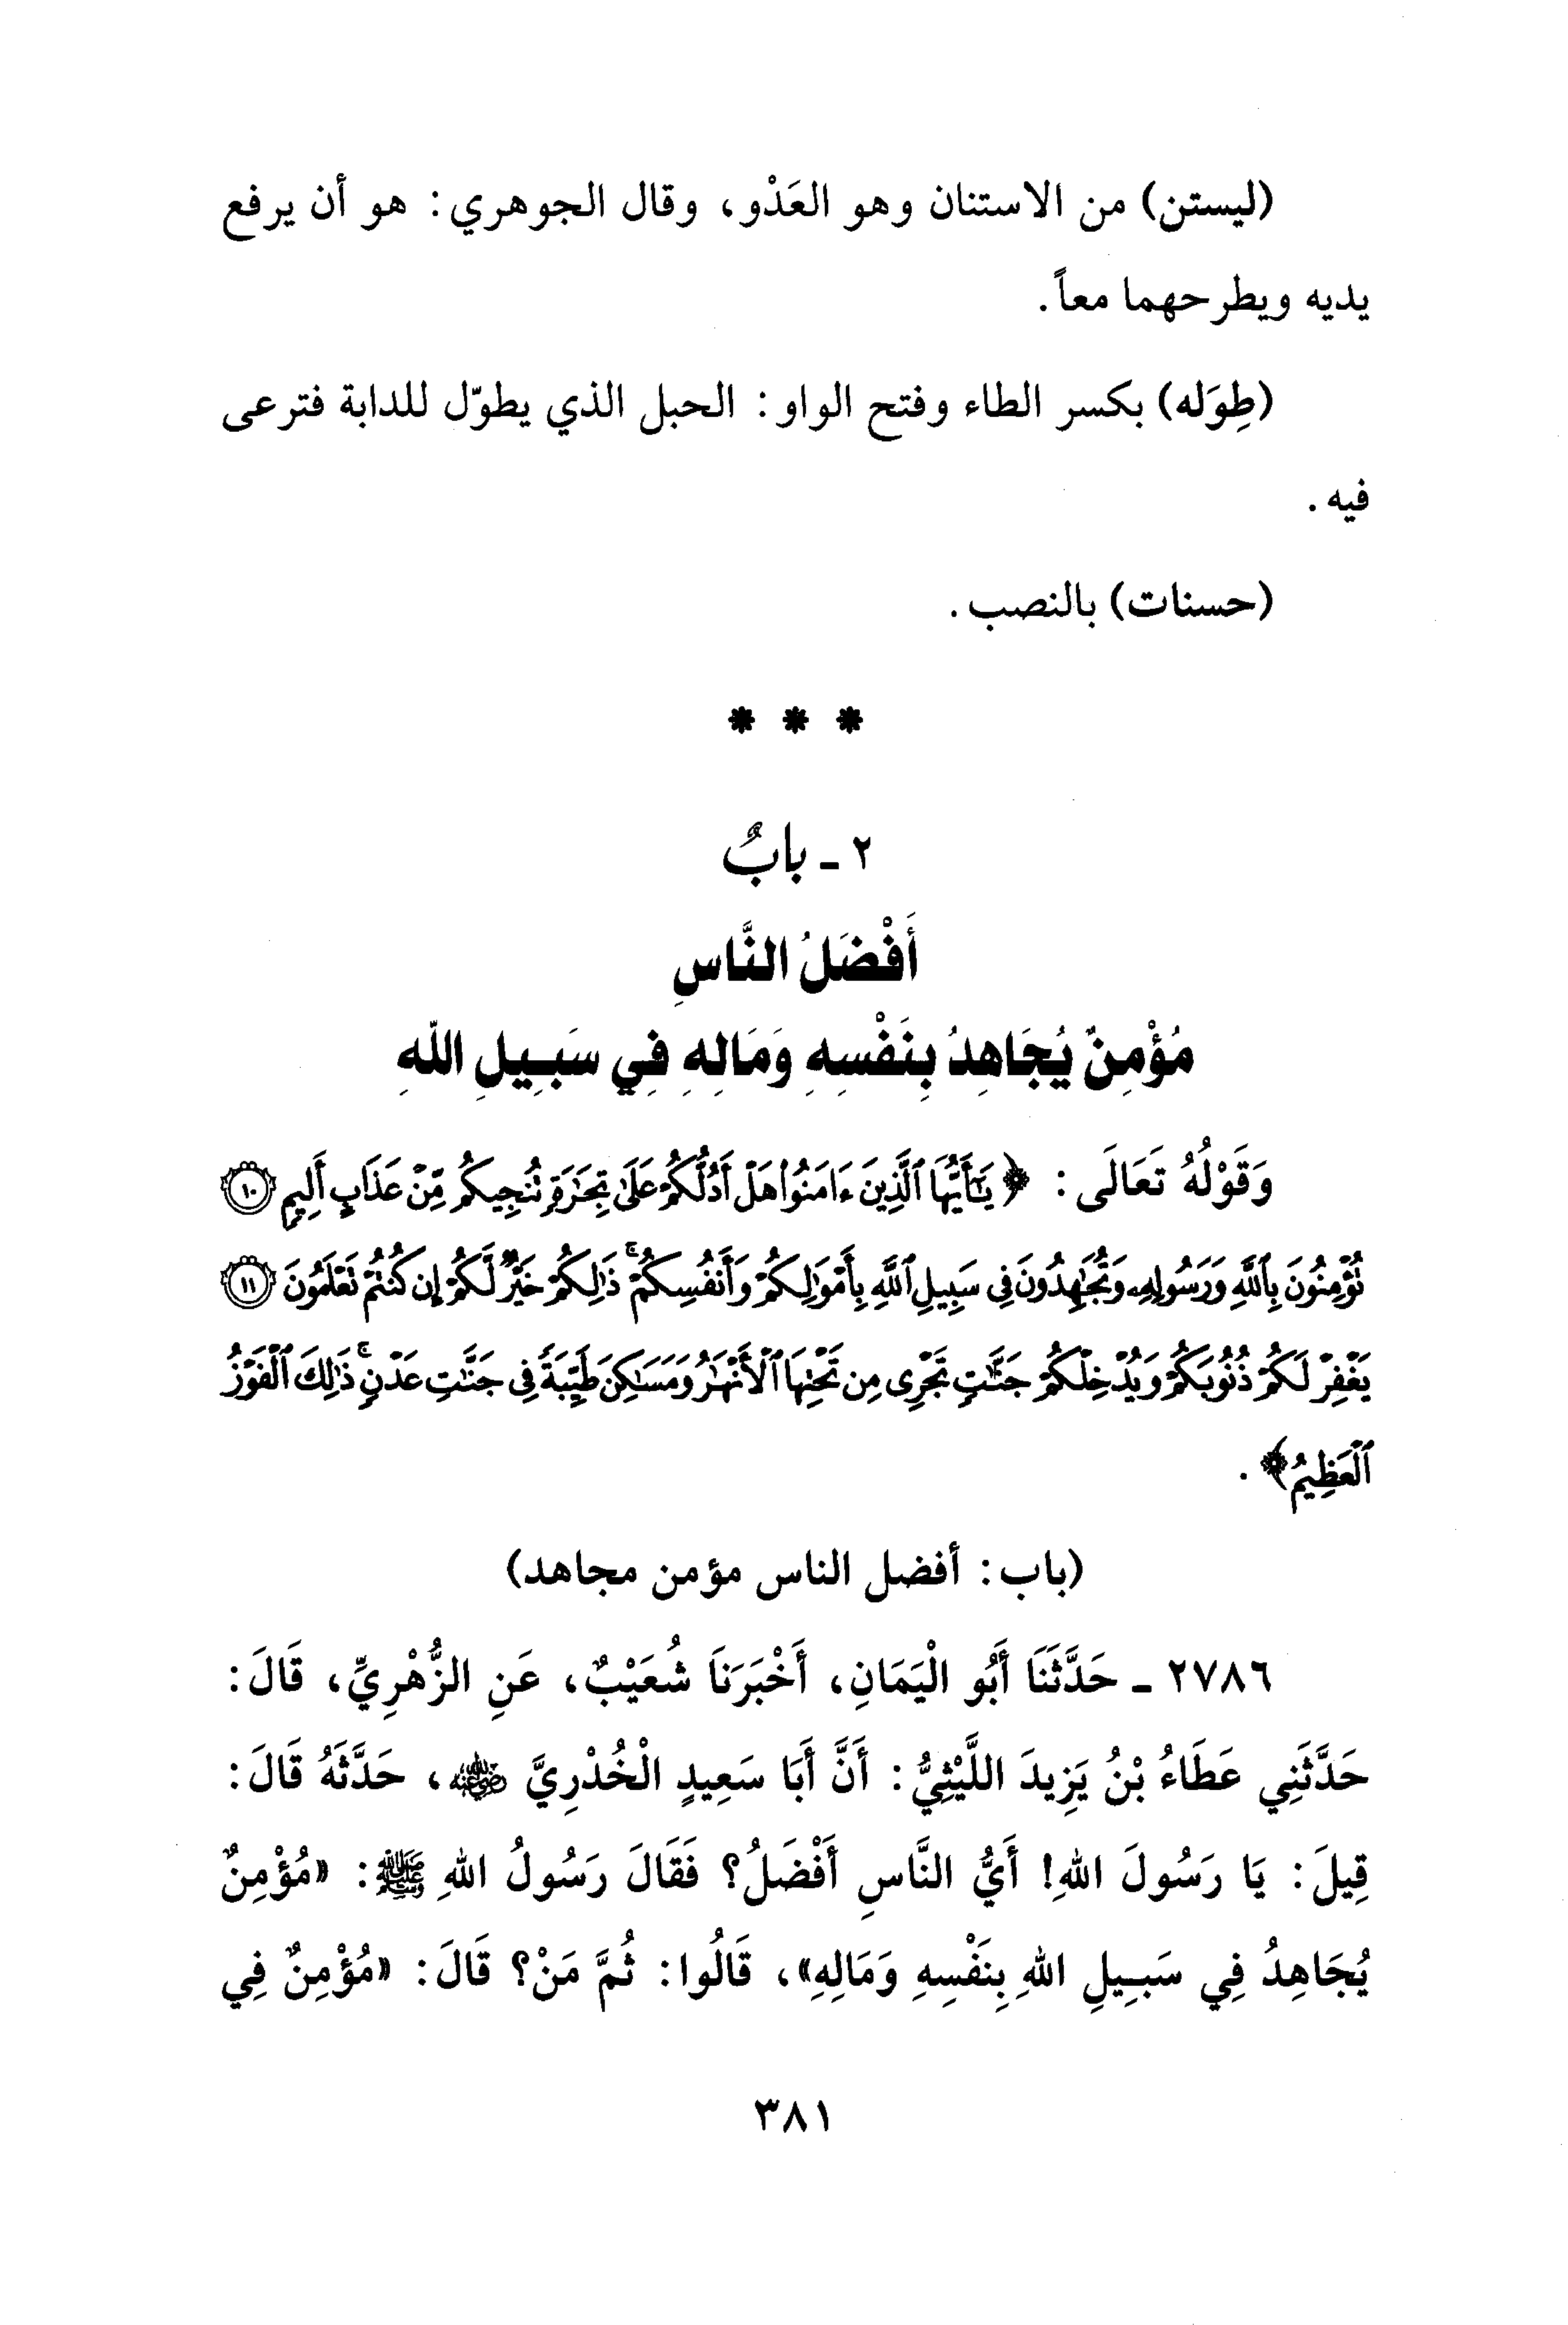 (ليستن) من الاستنان وهو العَدْو، وقال الجوهري: هو أن يرفع
يديه ويطرحهما معاً.
(طِوَله) بكسر الطاء وفتح الواو: الحبل الذي يطوّل للدابة فترعى
فيه.
(حسنات) بالنصب.
* * *
٢ ـ بابٌ
أَفْضَلُ النَّاسِ
مُؤْمِنٌ يُجَاهِدُ بِنَفْسِهِ وَمَالِهِ فِي سَبِيلِ اللهِ
وَقَوْلُهُ تَعَالَى: ﴿يَٰٓأَيُّهَا ٱلَّذِينَ ءَامَنُوا۟ هَلْ أَدُلُّكُمْ عَلَىٰ تِجَٰرَةٍ تُنجِيكُم مِّنْ عَذَابٍ أَلِيمٍ ١٠
تُؤْمِنُونَ بِٱللَّهِ وَرَسُولِهِۦ وَتُجَٰهِدُونَ فِى سَبِيلِ ٱللَّهِ بِأَمْوَٰلِكُمْ وَأَنفُسِكُمْ ۚ ذَٰلِكُمْ خَيْرٌ لَّكُمْ إِن كُنتُمْ تَعْلَمُونَ ١١
يَغْفِرْ لَكُمْ ذُنُوبَكُمْ وَيُدْخِلْكُمْ جَنَّٰتٍ تَجْرِى مِن تَحْتِهَا ٱلْأَنْهَٰرُ وَمَسَٰكِنَ طَيِّبَةً فِى جَنَّٰتِ عَدْنٍ ۚ ذَٰلِكَ ٱلْفَوْزُ
ٱلْعَظِيمُ﴾.
(باب: أفضل الناس مؤمن مجاهد)
٢٧٨٦ ـ حَدَّثَنَا أَبُو الْيَمَانِ، أَخْبَرَنَا شُعَيْبٌ، عَنِ الزُّهْرِيِّ، قَالَ:
حَدَّثَنِي عَطَاءُ بْنُ يَزِيدَ اللَّيْثِيُّ: أَنَّ أَبَا سَعِيدٍ الْخُدْرِيَّ رضي الله عنه، حَدَّثَهُ قَالَ:
قِيلَ: يَا رَسُولَ اللهِ! أَيُّ النَّاسِ أَفْضَلُ؟ فَقَالَ رَسُولُ اللهِ ﷺ: «مُؤْمِنٌ
يُجَاهِدُ فِي سَبِيلِ اللهِ بِنَفْسِهِ وَمَالِهِ»، قَالُوا: ثُمَّ مَنْ؟ قَالَ: «مُؤْمِنٌ فِي
٣٨١